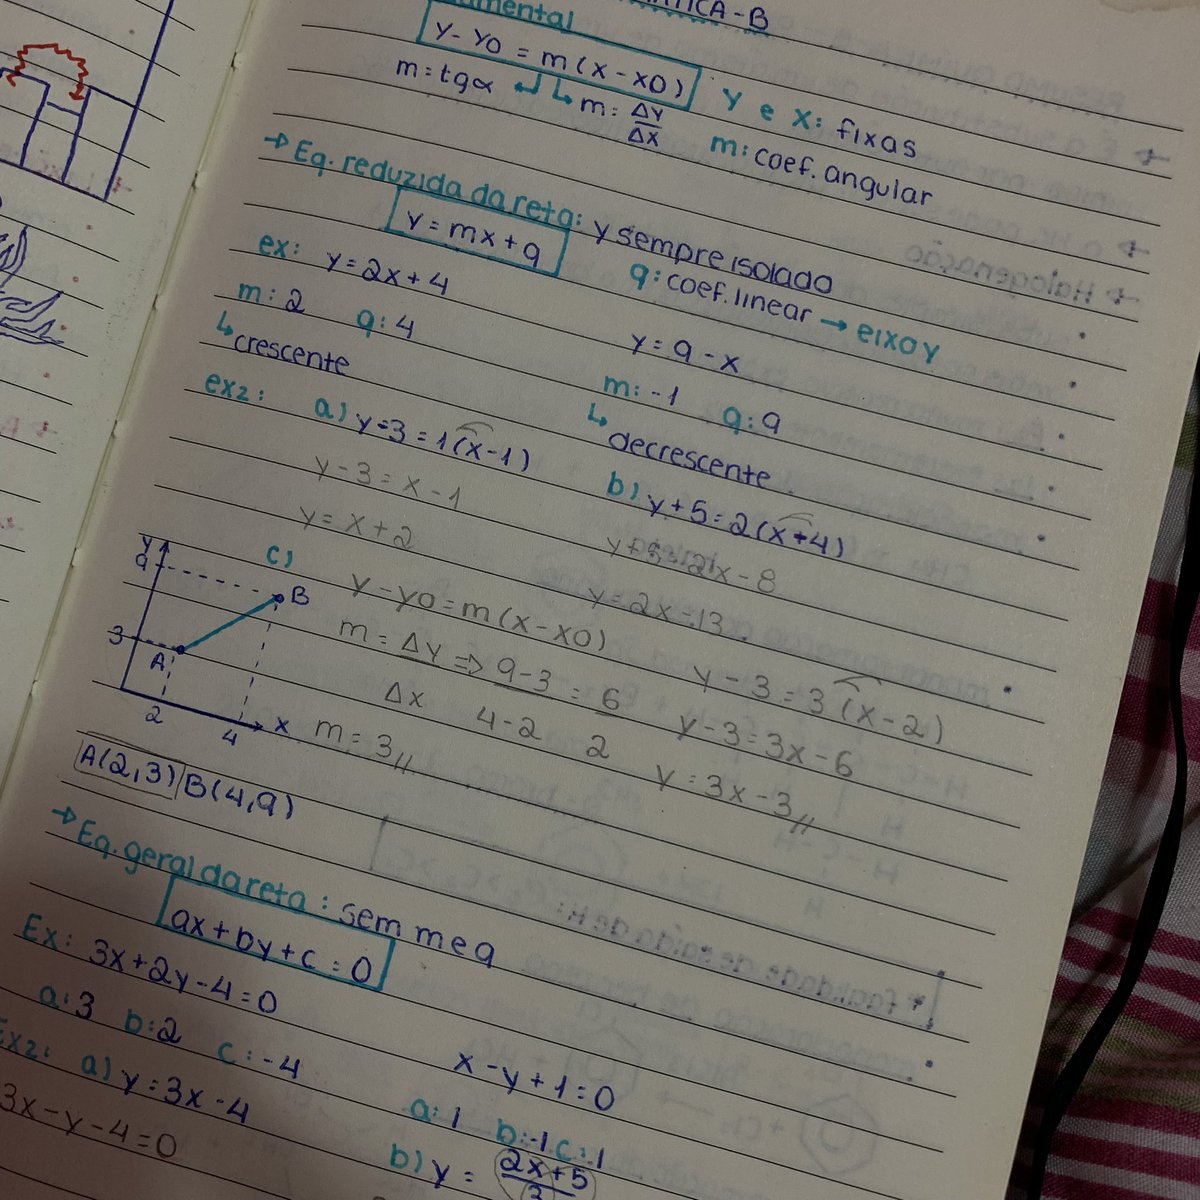 MÁTICA-B
amental
y-y0 = m(x-x0)
m=tgα
m: Δy/Δx
y e x: fixas
m: coef. angular
→Eq. reduzida da reta: y sempre isolado
y=mx+q
q: coef. linear → eixo y
ex: y=2x+4
m: 2 q: 4
↳crescente
y= 9-x
m: -1 q: 9
↳decrescente
ex2: a) y-3=1(x-1)
y-3=x-1
y=x+2
b) y+5=2(x+4)
y+5=2x-8
y=2x-13
c) y-y0=m(x-x0)
m= Δy/Δx => 9-3/4-2 = 6/2
m=3//
y-3=3(x-2)
y-3=3x-6
y=3x-3//
y
9
B
3
A
2
4
x
A(2,3) B(4,9)
→Eq. geral da reta: sem m e q
ax+by+c=0
Ex: 3x+2y-4=0
a:3 b:2 c:-4
x-y+1=0
a:1 b:-1 c:1
Ex2: a) y=3x-4
3x-y-4=0
b) y= 2x+5/3